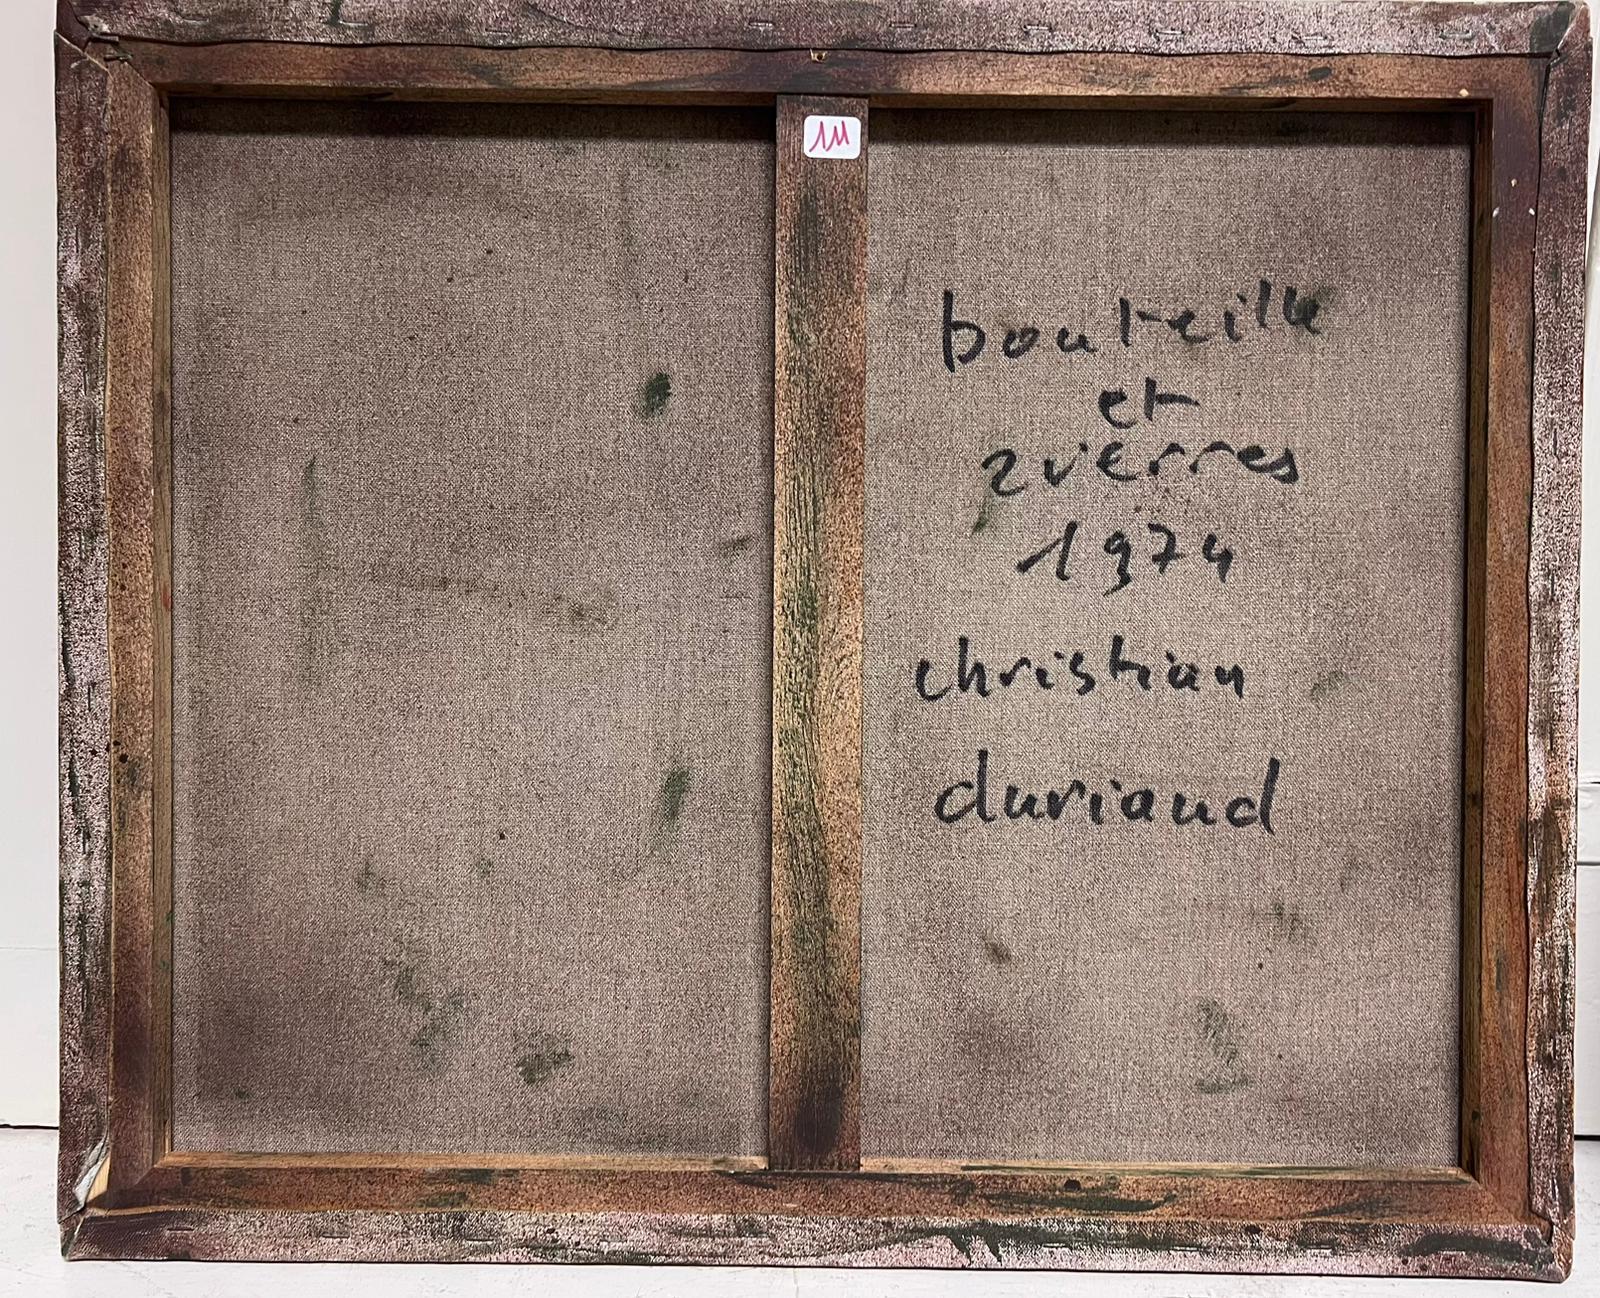 111
bouteille
et
2 verres
1974
christian
duriaud